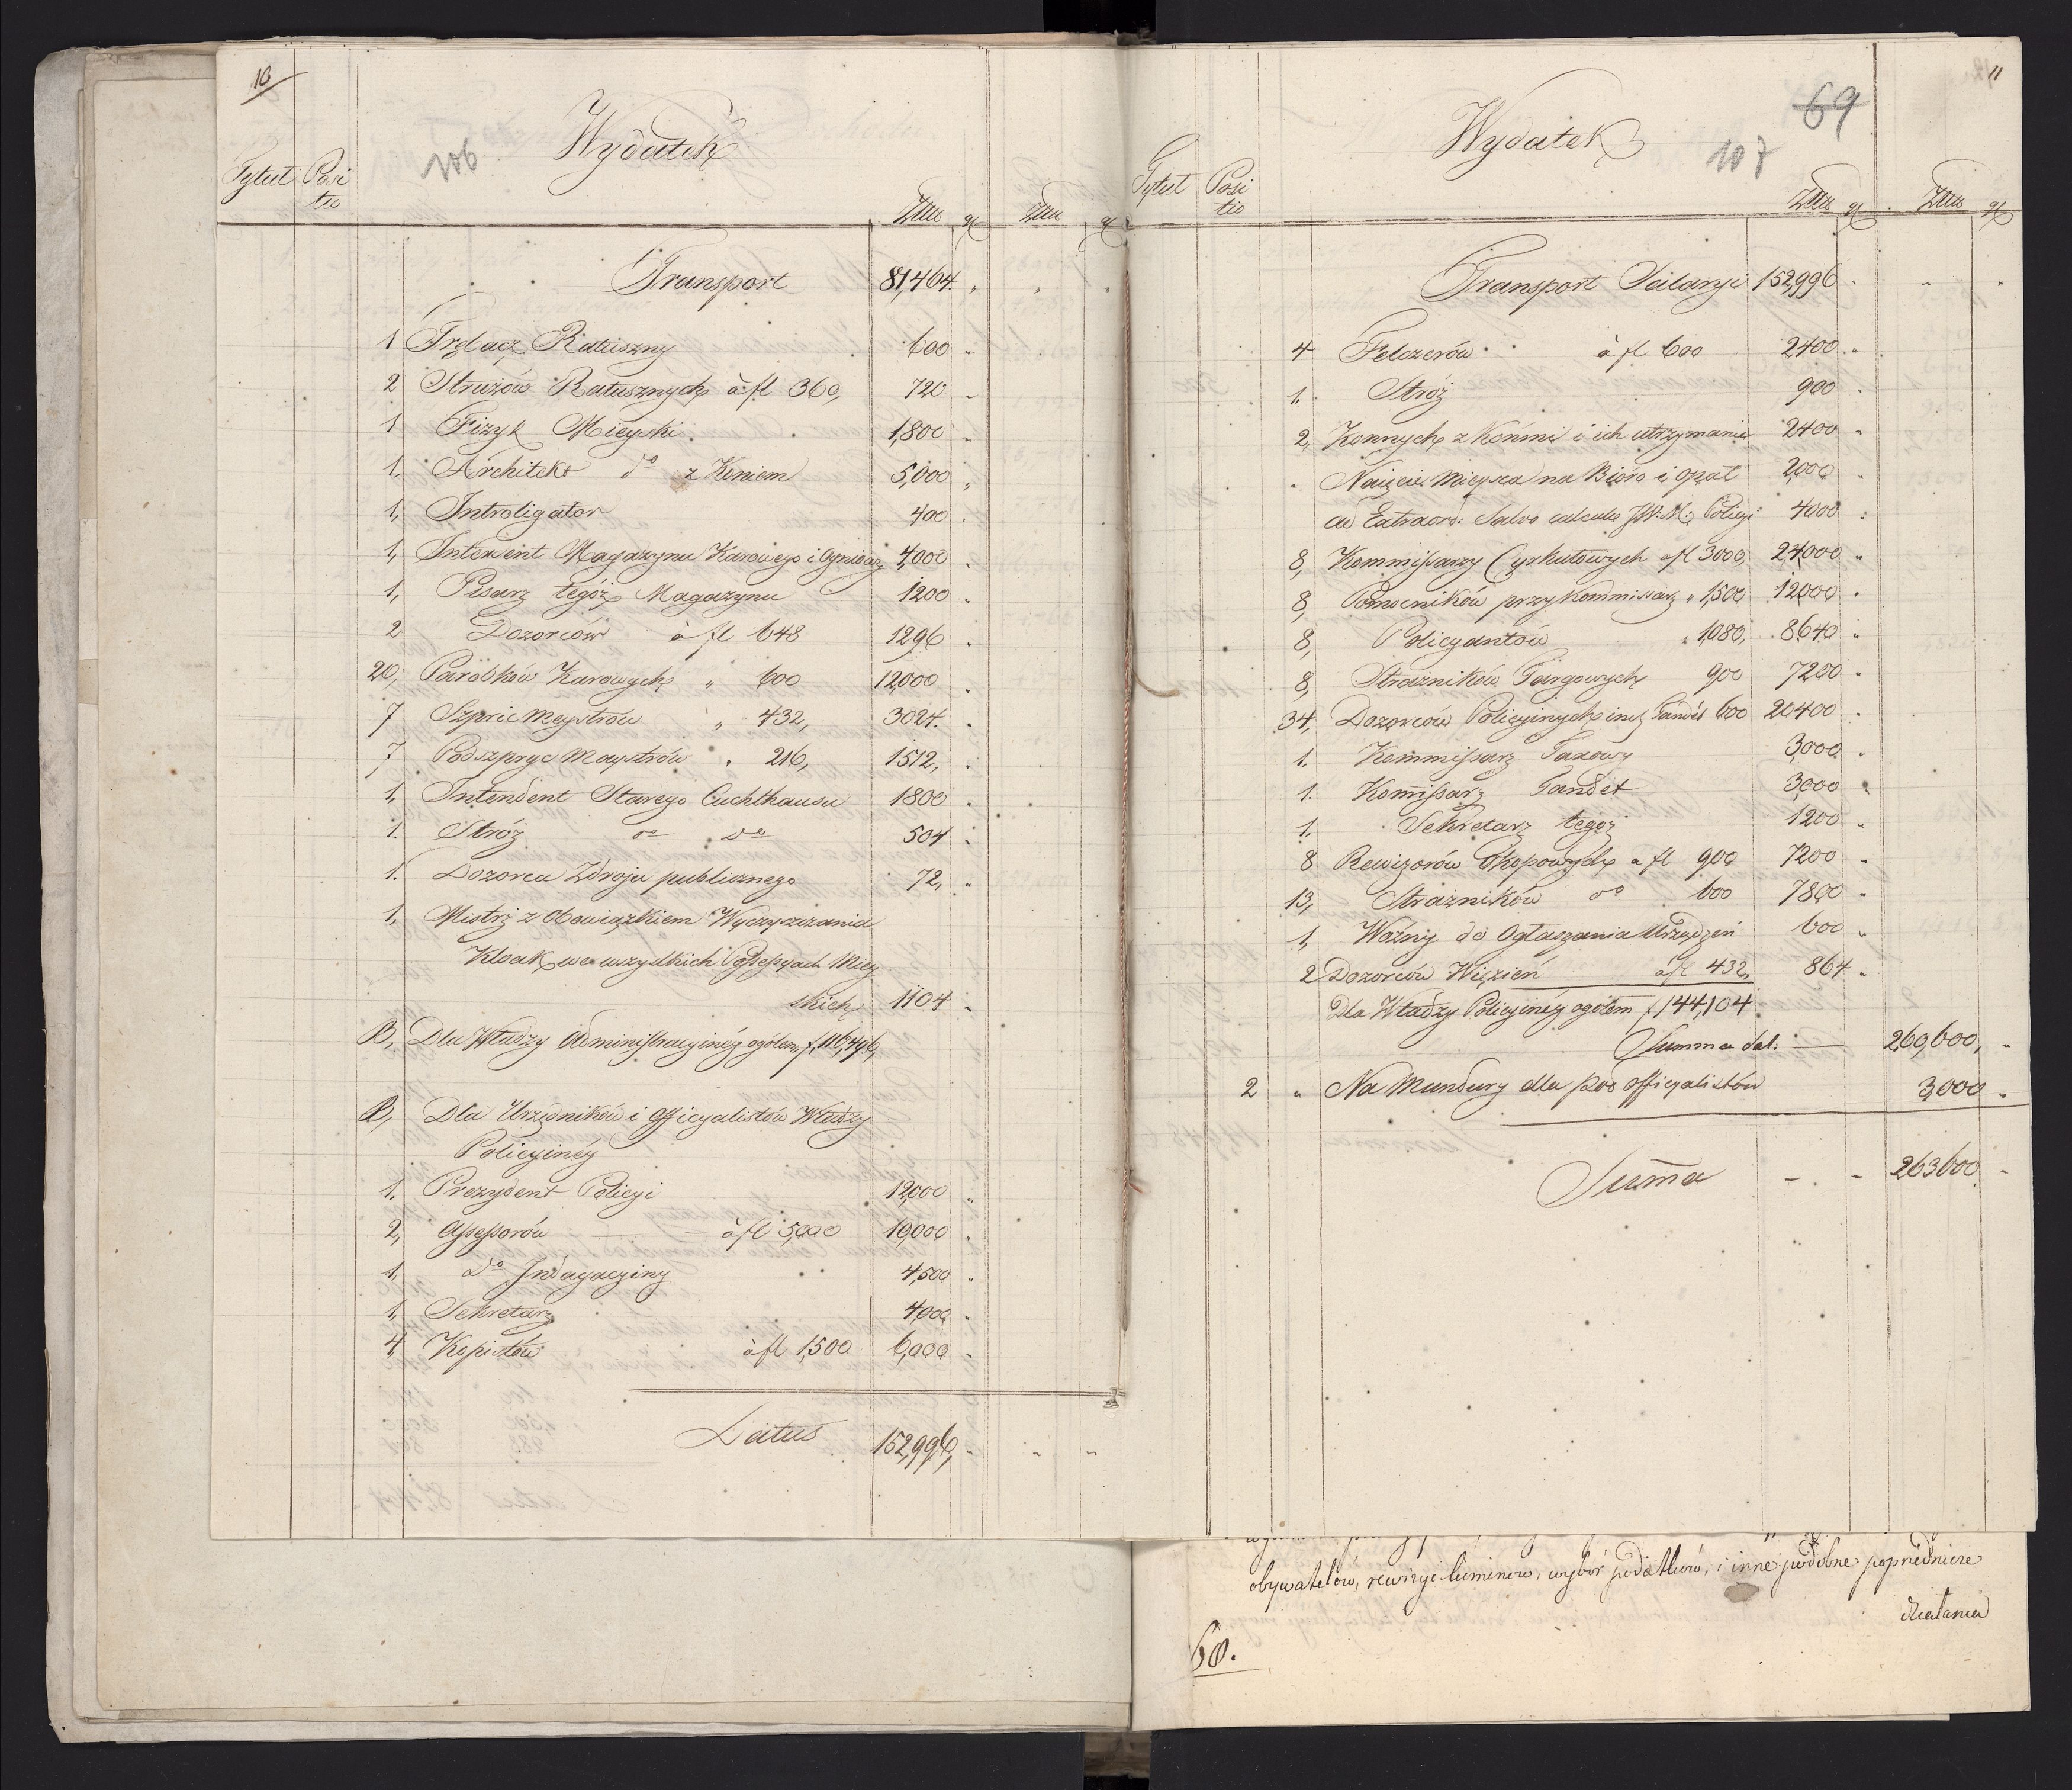 10
106
Wydatek
Tytuł Posi
tio
Złłł gr Złłł gr
Transport 81,464. "
1 Trębacz Ratuszny 600 "
2 Struzów Ratusznych à fl 360, 720 "
1 Fizyk Mieyski 1,800 "
1. Architekt do z Koniem 5,000 "
1, Introligator 400 "
1, Intendent Magazynu Karowego i Ogniowego 4,000 "
1, Pisarz tegóż Magazynu 1200 "
2 Dozorców à fl 648 1296 "
20, Parobków Karowych " 600 12,000 "
7 Szpric Meystrów " 432, 3024. "
7 Podszpryc Maystrów " 216, 1512, "
1, Intendent Starego Cuchthausu 1800 "
1. Stróż do do 504 "
1. Dozorca Zdroju publicznego 72, "
1, Mistrz z Obowiązkiem Wyczyszczania
Kloak we wszystkich Possessyach Miey
skich 1104 "
B, Dla Władzy Administracyinéy ogółem f, 116,496,
B, Dla Urzędników i Officyalistów Władzy
Policyinéy
1. Prezydent Policyi 12,000 "
2, Assessorów à fl 5,000 10,000 "
1, do Indagacyiny 4,500 "
1, Sekretarz 4,000 "
4 Kopistów à fl 1,500 6,000 "
Latus 152,996, " " "
11
69
107
Wydatek
Tytuł Posi
tio
Złłł gr Złłł gr
Transport Salaryi 152,996 " " "
4 Felczerów à fl 600 2400 "
1. Stróż 900 "
2, Konnych z Końmi i ich utrzymanie 2400 "
" Naięcie Mieysca na Bióro i Opał 2,000 "
ad Extraord: Salvo calculo JW. M: Policyi 4000 "
8, Kommissarzy Cyrkułowych a fl 3000, 24000 "
8, Pomocników przy Kommissarz " 1,500 12000 "
8, Policyantów " 1080, 8640 "
8, Strażników Targowych 900 7200 "
34, Dozorców Policyinych incl Tandét 600 20400 "
1. Kommissarz Taxowy 3,000. "
1. Komissarz Tandet 3,000 "
1. Sekretarz tegoż 1200 "
8 Rewizorów Okopowych a fl 900 7200 "
13, Strażników do 600 7800 "
1, Woźny do Ogłaszania Urządzeń 600 "
2 Dozorców Więzień à fl 432, 864 "
Dla Władzy Policyinéy ogółem f 144,104
Summa dal. — 260,600, "
2 " Na Mundury dla pod officyalistów 3,000 "
Summa - - 263600 -
obywatelów, rewizye kominów, wybór podatków, i inne podobne poprzednicze
działania
68.